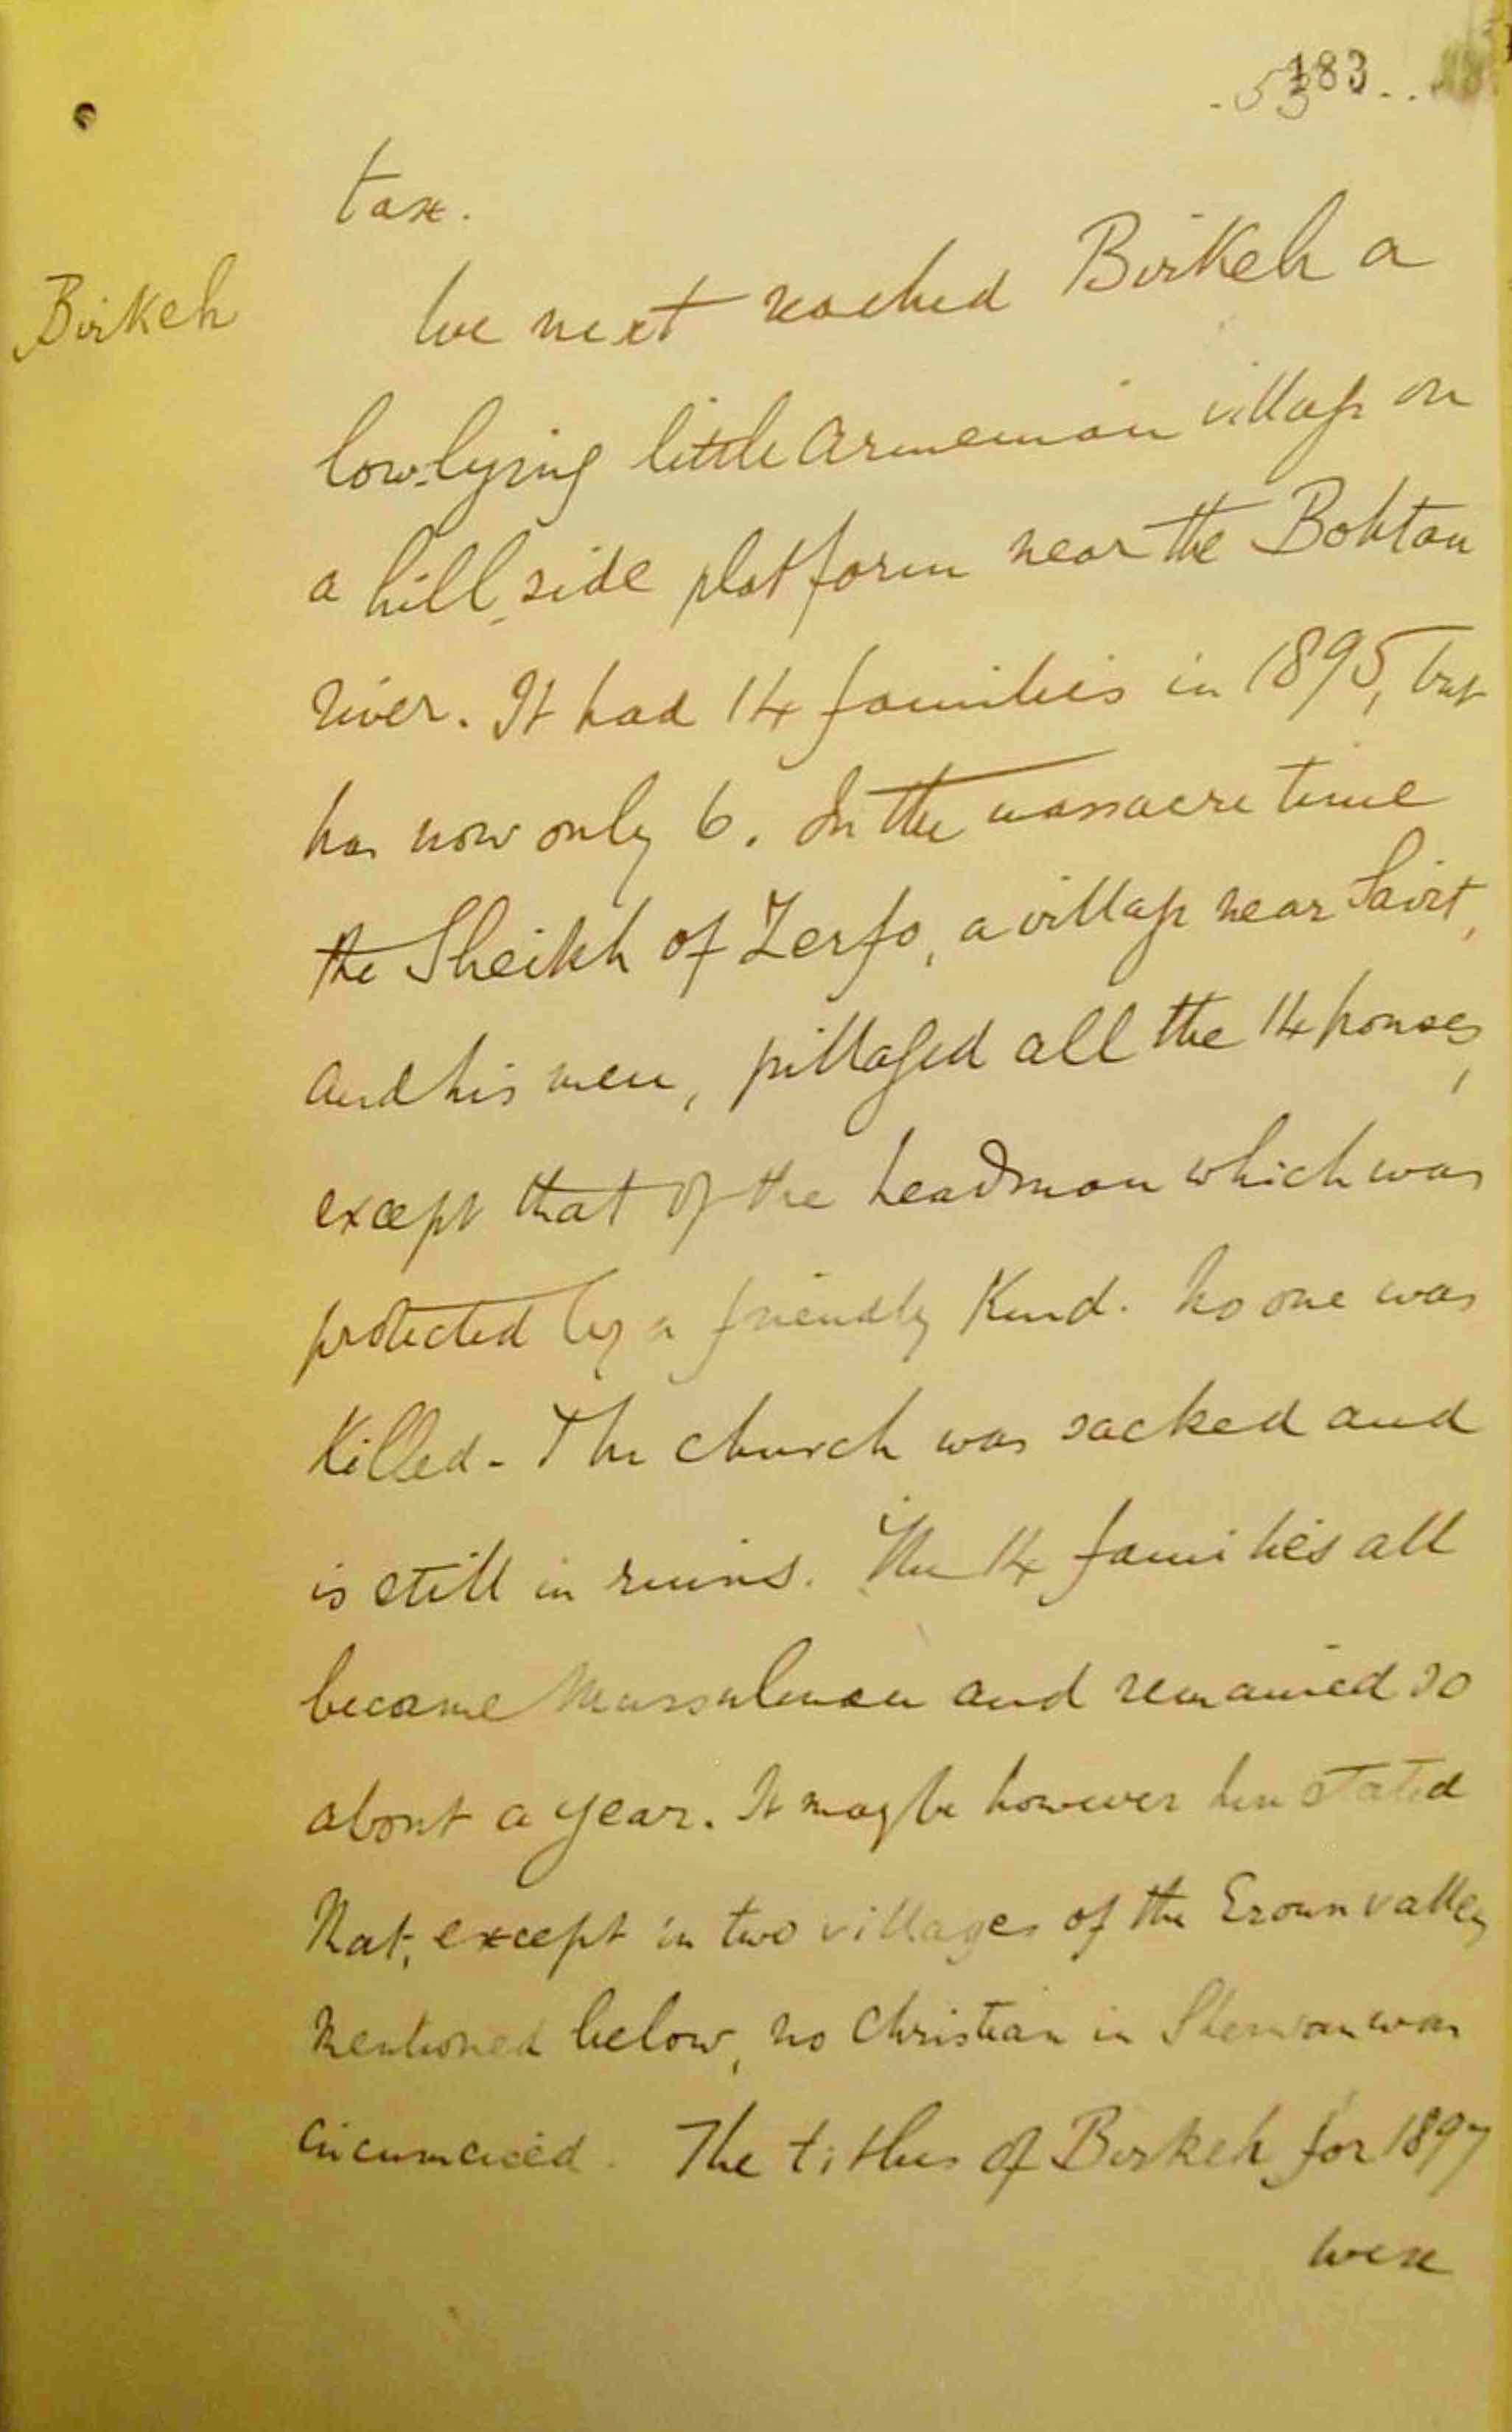 183
53
tax.
Birkeh
We next reached Birkeh a
low-lying little Armenian village on
a hill side platform near the Bohtan
river. It had 14 families in 1895, but
has now only 6. In the massacre time
the Sheikh of Zerfo, a village near Sairt,
and his men, pillaged all the 14 houses,
except that of the headman which was
protected by a friendly Kurd. No one was
killed. The church was sacked and
is still in ruins. The 14 families all
became Mussulman and remained so
about a year. It may be however here stated
that, except in two villages of the Eroun valley
mentioned below, no Christian in Sherwan was
circumcised. The tithes of Birkeh for 1897
were